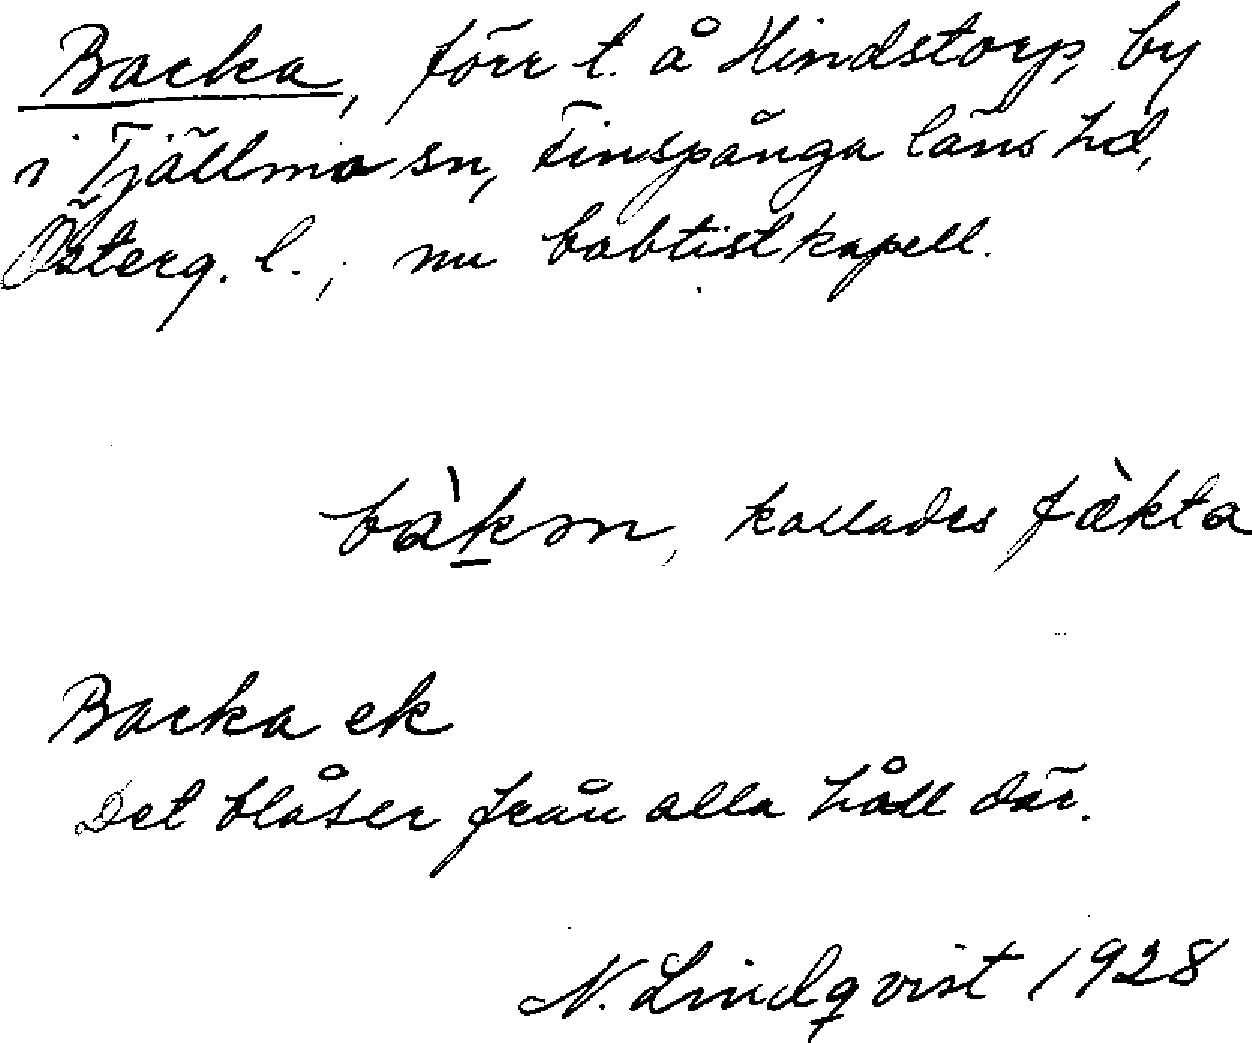 Backa, förr t. å Hindstorp, by
i Tjällmo sn, Finspånga läns hd,
Österg. l., nu babtistkapell.
bàkm, kallades fàkta
Backa ek
Det blåser från alla håll där.
N. Lindqvist 1928